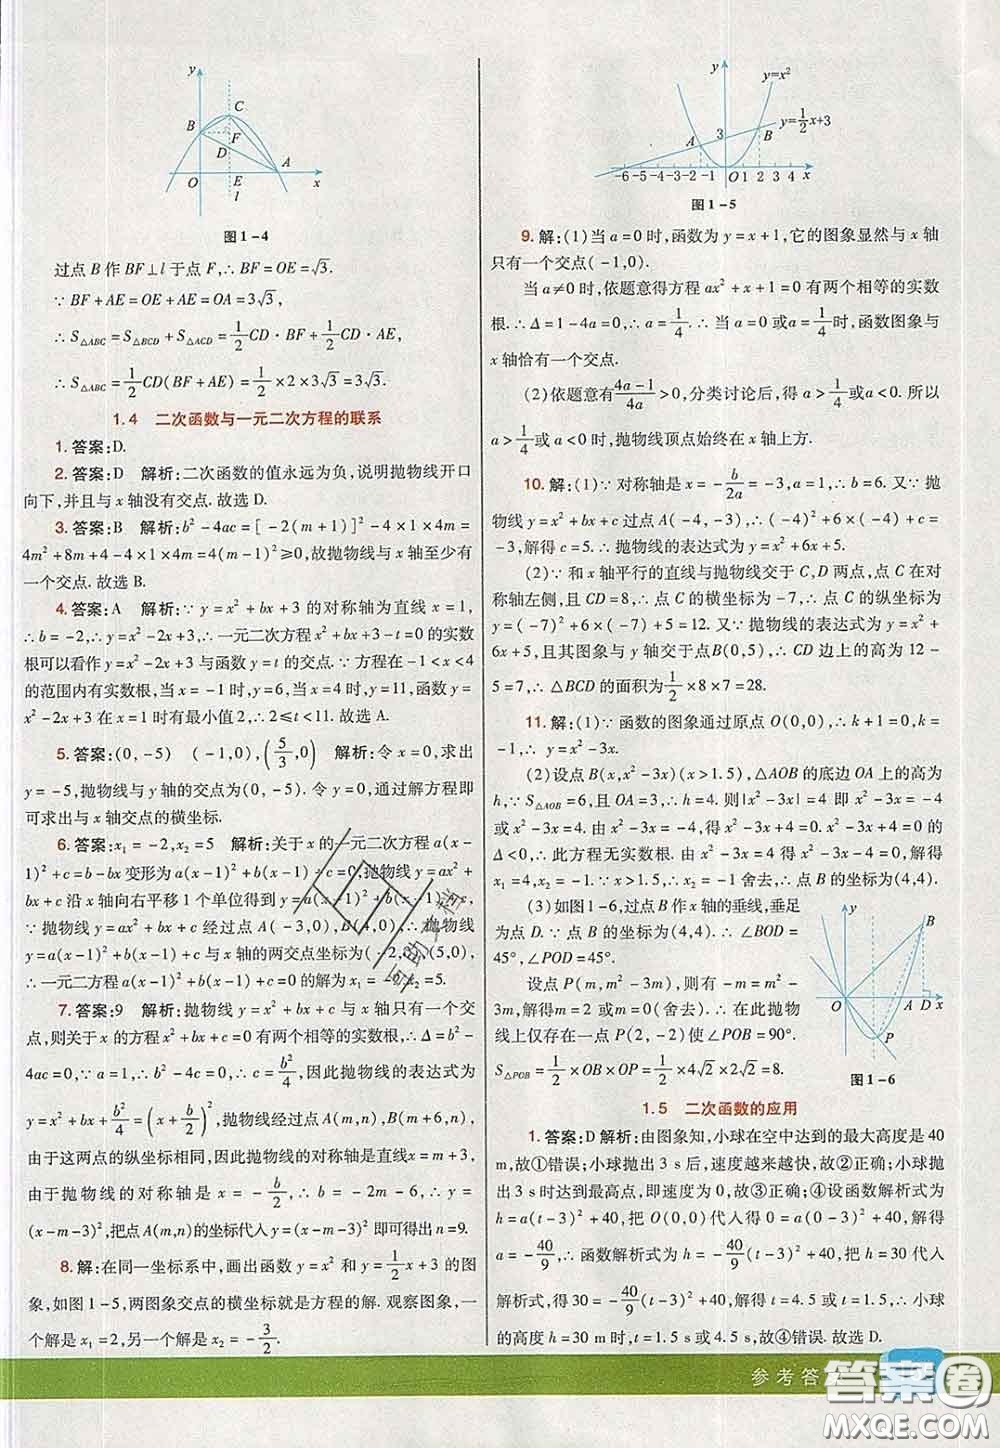 y
C
B
F
D
A
O
E
x
l
图1-4
过点 B 作 BF⊥l 于点 F,∴BF=OE=√3.
∵BF+AE=OE+AE=OA=3√3,
∴S△ABC=S△BCD+S△ACD=1/2CD·BF+1/2CD·AE,
∴S△ABC=1/2CD(BF+AE)=1/2×2×3√3=3√3.
1.4 二次函数与一元二次方程的联系
1.答案:D.
2.答案:D 解析:二次函数的值永远为负,说明抛物线开口
向下,并且与 x 轴没有交点.故选 D.
3.答案:B 解析:b²-4ac=[-2(m+1)]²-4×1×4m=
4m²+8m+4-4×1×4m=4(m-1)²≥0,故抛物线与 x 轴至少有
一个交点.故选 B.
4.答案:A 解析:∵y=x²+bx+3 的对称轴为直线 x=1,
∴b=-2,∴y=x²-2x+3,∴一元二次方程 x²+bx+3-t=0 的实数
根可以看作 y=x²-2x+3 与函数 y=t 的交点.∵方程在-1<x<4
的范围内有实数根,当 x=-1 时,y=6,当 x=4 时,y=11,函数 y=
x²-2x+3 在 x=1 时有最小值 2,∴2≤t<11.故选 A.
5.答案:(0,-5) (-1,0),(5/3,0) 解析:令 x=0,求出
y=-5,抛物线与 y 轴的交点为(0,-5).令 y=0,通过解方程即
可求出与 x 轴交点的横坐标.
6.答案:x₁=-2,x₂=5 解析:关于 x 的一元二次方程 a(x-
1)²+c=b-bx 变形为 a(x-1)²+b(x-1)+c=0,抛物线 y=ax²+
bx+c 沿 x 轴向右平移 1 个单位得到 y=a(x-1)²+b(x-1)+c,
∵抛物线 y=ax²+bx+c 经过点 A(-3,0),B(4,0),∴抛物线
y=a(x-1)²+b(x-1)+c 与 x 轴的两交点坐标为(-2,0),(5,0),
∴一元二次方程 a(x-1)²+b(x-1)+c=0 的解为 x₁=-2,x₂=5.
7.答案:9 解析:抛物线 y=x²+bx+c 与 x 轴只有一个交
点,则关于 x 的方程 x²+bx+c=0 有两个相等的实数根,∴Δ=b²-
4ac=0,∴b²-4c=0,∴c=b²/4,因此抛物线的表达式为
y=x²+bx+b²/4=(x+b/2)²,抛物线过点 A(m,n),B(m+6,n),
由于这两点的纵坐标相同,因此抛物线的对称轴是直线 x=m+3,
由于抛物线的对称轴是 x=-b/2,∴-b/2=m+3,∴y=
(x-m-3)²,把点 A(m,n)的坐标代入 y=(x-m-3)²即可得出 n=9.
8.解:在同一坐标系中,画出函数 y=x² 和 y=1/2x+3 的图
象,如图 1-5,两图象交点的横坐标就是方程的解.观察图象,一
个解是 x₁=2,另一个解是 x₂=-3/2.
y
y=x²
y=1/2x+3
3
A
B
-6 -5 -4 -3 -2 -1 O 1 2 3 4 x
图1-5
9.解:(1)当 a=0 时,函数为 y=x+1,它的图象显然与 x 轴
只有一个交点(-1,0).
当 a≠0 时,依题意得方程 ax²+x+1=0 有两个相等的实数
根.∴Δ=1-4a=0,∴a=1/4.∴当 a=0 或 a=1/4时,函数图象与
x 轴恰有一个交点.
(2)依题意有(4a-1)/4a>0,分类讨论后,得 a>1/4或 a<0.所以
a>1/4或 a<0 时,抛物线顶点始终在 x 轴上方.
10.解:(1)∵对称轴是 x=-b/2a=-3,a=1,∴b=6.又∵抛
物线 y=x²+bx+c 过点 A(-4,-3),∴(-4)²+6×(-4)+c=
-3,解得 c=5.∴抛物线的表达式为 y=x²+6x+5.
(2)∵和 x 轴平行的直线与抛物线交于 C,D 两点,点 C 在对
称轴左侧,且 CD=8,∴点 C 的横坐标为-7,∴点 C 的纵坐标为
y=(-7)²+6×(-7)+5=12.又∵抛物线的表达式为 y=x²+
6x+5,且其图象与 y 轴交于点B(0,5),∴CD 边上的高为 12-
5=7,∴△BCD 的面积为1/2×8×7=28.
11.解:(1)∵函数的图象通过原点 O(0,0),∴k+1=0,k=
-1,∴y=x²-3x.
(2)设点 B(x,x²-3x)(x>1.5),△AOB 的底边 OA 上的高为
h,∵S△AOB=6,且 OA=3,∴h=4.则|x²-3x|=4 即 x²-3x=-4
或 x²-3x=4.由 x²-3x=-4 得 x²-3x+4=0,由根的判别式
Δ<0,∴此方程无实数根.由 x²-3x=4 得 x²-3x-4=0,解得
x₁=4,x₂=-1,∵x>1.5,∴x=-1 舍去,∴点 B 的坐标为(4,4).
(3)如图 1-6,过点 B 作 x 轴的垂线,垂足
为点 D.∵点 B 的坐标为(4,4).∴∠BOD=
45°,∠POD=45°.
设点 P(m,m²-3m),则有-m=m²-
3m,解得 m=2 或 m=0(舍去).∴在此抛物
线上仅存在一点 P(2,-2)使∠POB=90°.
S△POB=1/2×OB×OP=1/2×4√2×2√2=8.
y
B
O
A
D
x
P
图1-6
1.5 二次函数的应用
1.答案:D 解析:由图象知,小球在空中达到的最大高度是 40
m,故①错误;小球抛出 3 s 后,速度越来越快,故②正确;小球抛
出 3 s时达到最高点,即速度为 0,故③正确;④设函数解析式为
h=a(t-3)²+40,把 O(0,0)代入得 0=a(0-3)²+40,解得
a=-40/9,∴函数解析式为 h=-40/9(t-3)²+40,把 h=30 代入
解析式,得 30=-40/9(t-3)²+40,解得 t=4.5 或 t=1.5,∴小球
的高度 h=30 m时,t=1.5 或 4.5 s,故④错误.故选 D.
参考答
答案卷
MXQE.COM